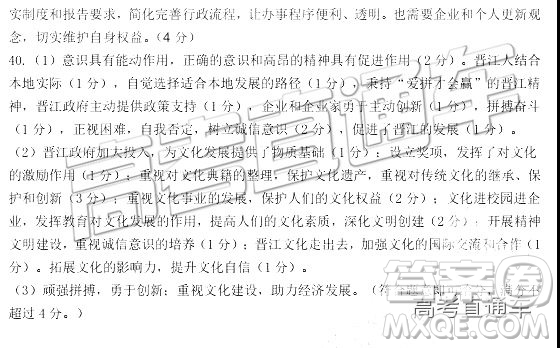 实制度和报告要求，简化完善行政流程，让办事程序便利、透明。也需要企业和个人更新观
念，切实维护自身权益。（4 分）
40.（1）意识具有能动作用，正确的意识和高昂的精神具有促进作用（2 分）。晋江人结合
本地实际（1 分），自觉选择适合本地发展的路径（1 分），秉持“爱拼才会赢”的晋江精
神，晋江政府主动提供政策支持（1 分），企业和企业家勇于主动创新（1 分），拼搏奋斗
（1 分），正视困难，自我否定，树立诚信意识（2 分），促进了晋江的发展（1 分）。
（2）晋江政府加大投入，为文化发展提供了物质基础（1 分）；设立奖项，发挥了对文化
的激励作用（1 分）；重视对文化典籍的整理，保护文化遗产，重视对传统文化的继承、保
护和创新（3 分）；重视文化事业的发展，保护人们的文化权益（2 分）；文化进校园进企
业，发挥教育对文化发展的作用，提高人们的文化素质，深化文明创建（2 分）；开展精神
文明建设，重视诚信意识的培养（1 分）；晋江文化走出去，加强文化的国际交流和合作（1
分）。拓展文化的影响力，提升文化自信（1 分）。
（3）顽强拼搏，勇于创新；重视文化建设，助力经济发展。（符
超过 4 分。）
高考直通车
答案圈
高考直通车
MXQE.COM